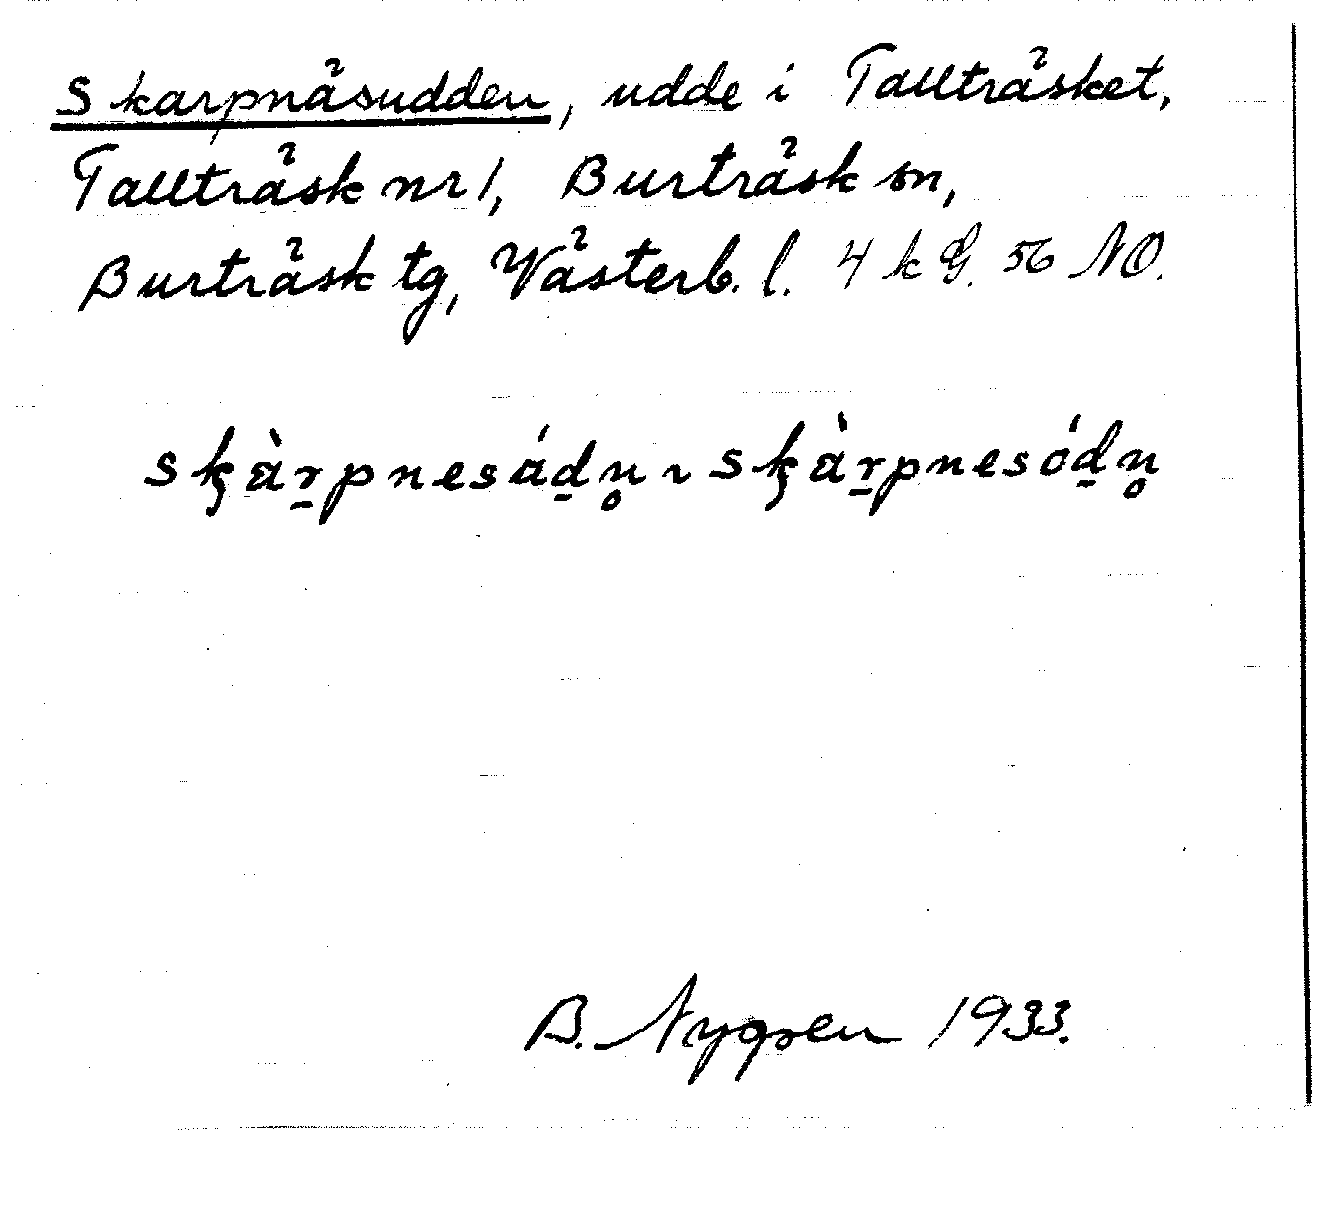 Skarpnäsudden, udde i Tallträsket,
Tallträsk nr 1, Burträsk sn,
Burträsk tg, Västerb. l. 4 kg. 56 NO.
sk̡àr̠pnesád̠n̥ ~ sk̡àr̠pnesód̠n̥
B. Nygren 1933.